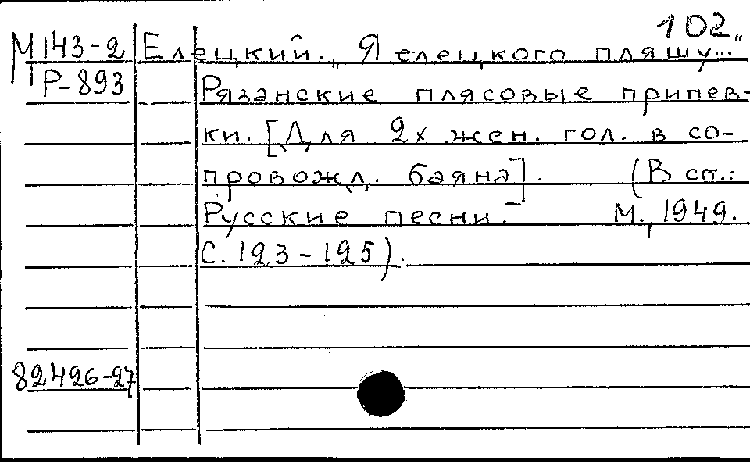 102
М 143-2 Елецкий. „Я елецкого пляшу..."
Р-893 Рязанские плясовые припев-
ки. [Для 2х жен. гол. в со-
провожд. баяна]. (В сп.:
Русские песни. М., 1949.
С. 123-125).
82426-27